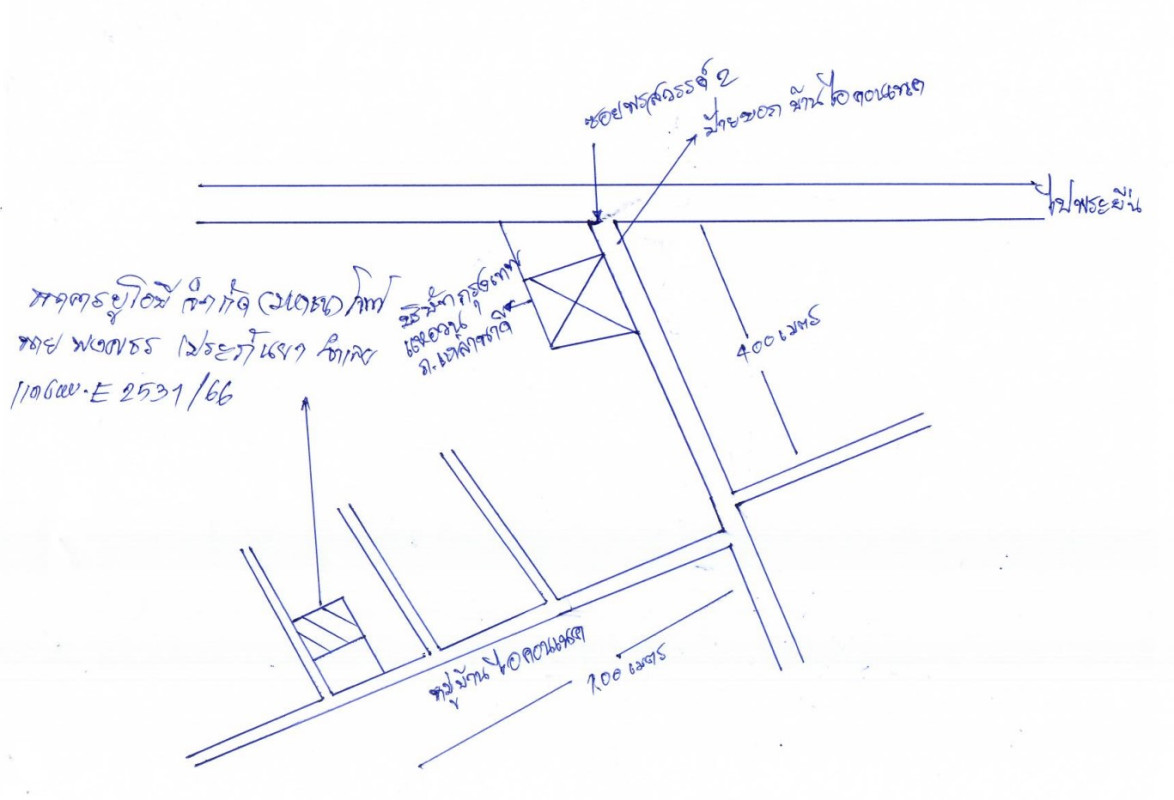 ซอยพรสวรรค์ 2
ป้ายบอก บ้านไอคอนเนค
ไปพระยืน
ธนาคารยูโอบี จำกัด (มหาชน) โจทก์
นาย พงศธร จำเลย
E 2531/66
บริษัท กรุงเทพ
แหอวน
ถ.เหล่านาดี
400 เมตร
หมู่บ้านไอคอนเนค
200 เมตร